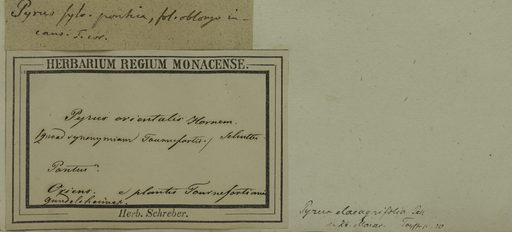 Pyrus sylv. pontica, fol. oblongo in-
cano. T. cor.
HERBARIUM REGIUM MONACENSE.
Pyrus orientalis Hornem.
(quoad synonymiam Tournefortii.)
Pontus
Oriens. e plantis Tournefortianis
gundelsheimer.
Herb. Schreber.
Pyrus elaeagrifolia Pall